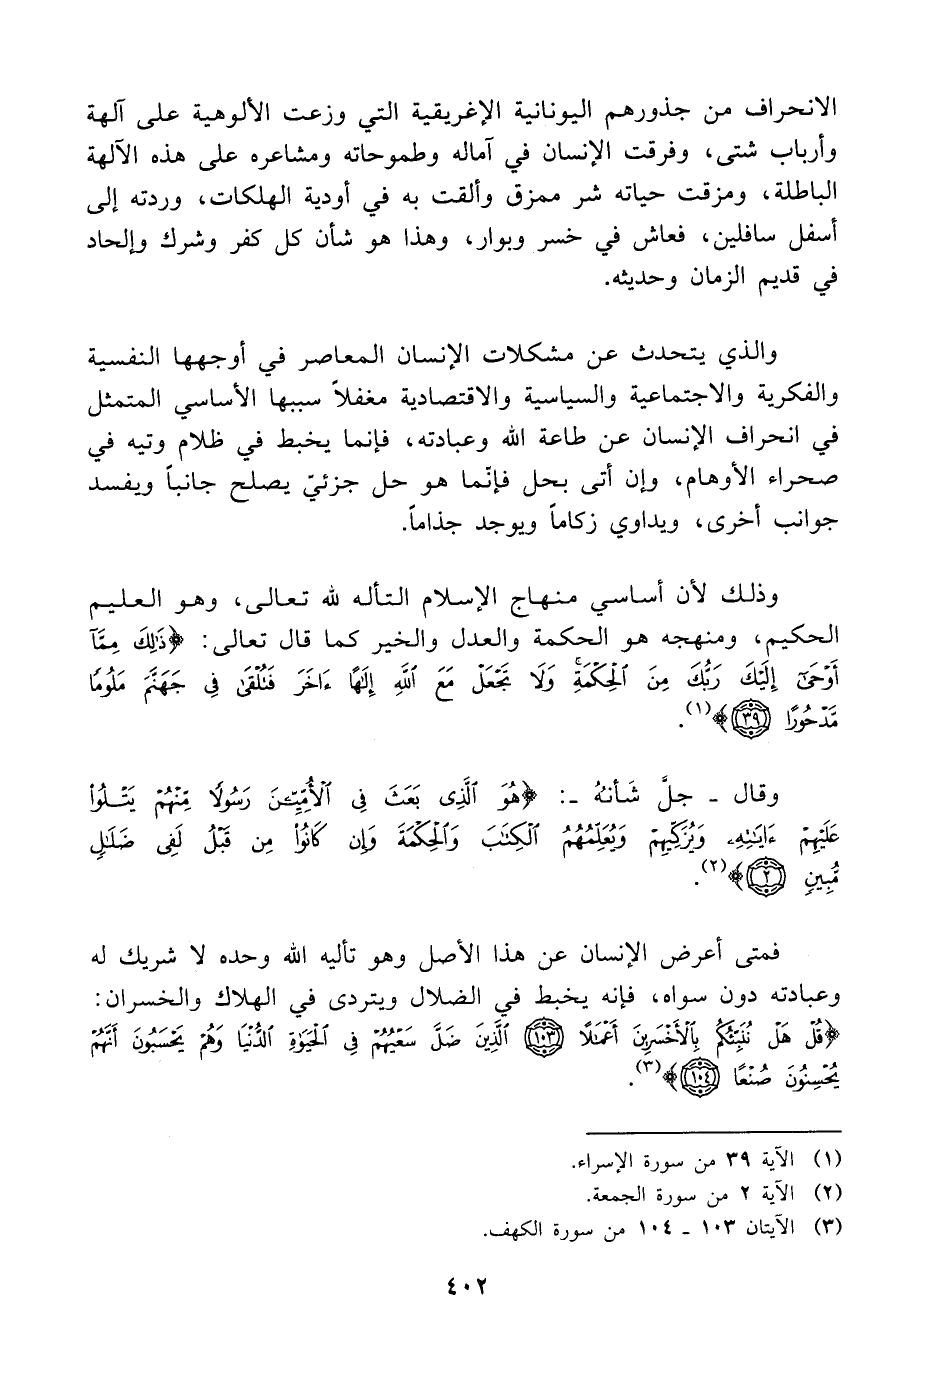 الانحراف من جذورهم اليونانية الإغريقية التي وزعت الألوهية على آلهة
وأرباب شتى، وفرقت الإنسان في آماله وطموحاته ومشاعره على هذه الآلهة
الباطلة، ومزقت حياته شر ممزق وألقت به في أودية الهلكات، وردته إلى
أسفل سافلين، فعاش في خسر وبوار، وهذا هو شأن كل كفر وشرك وإلحاد
في قديم الزمان وحديثه.
والذي يتحدث عن مشكلات الإنسان المعاصر في أوجهها النفسية
والفكرية والاجتماعية والسياسية والاقتصادية مغفلاً سببها الأساسي المتمثل
في انحراف الإنسان عن طاعة الله وعبادته، فإنما يخبط في ظلام وتيه في
صحراء الأوهام، وإن أتى بحل فإنّما هو حل جزئيّ يصلح جانباً ويفسد
جوانب أخرى، ويداوي زكاماً ويوجد جذاماً.
وذلك لأن أساسي منهاج الإسلام التأله لله تعالى، وهو العليم
الحكيم، ومنهجه هو الحكمة والعدل والخير كما قال تعالى: ﴿ذَٰلِكَ مِمَّآ
أَوْحَىٰٓ إِلَيْكَ رَبُّكَ مِنَ ٱلْحِكْمَةِۗ وَلَا تَجْعَلْ مَعَ ٱللَّهِ إِلَٰهًا ءَاخَرَ فَتُلْقَىٰ فِى جَهَنَّمَ مَلُومًا
مَّدْحُورًا ٣٩﴾(١).
وقال ـ جلَّ شَأنهُ ـ: ﴿هُوَ ٱلَّذِى بَعَثَ فِى ٱلْأُمِّيِّـۧنَ رَسُولًا مِّنْهُمْ يَتْلُوا۟
عَلَيْهِمْ ءَايَٰتِهِۦ وَيُزَكِّيهِمْ وَيُعَلِّمُهُمُ ٱلْكِتَٰبَ وَٱلْحِكْمَةَ وَإِن كَانُوا۟ مِن قَبْلُ لَفِى ضَلَٰلٍ
مُّبِينٍ ٢﴾(٢).
فمتى أعرض الإنسان عن هذا الأصل وهو تأليه الله وحده لا شريك له
وعبادته دون سواه، فإنه يخبط في الضلال ويتردى في الهلاك والخسران:
﴿قُلْ هَلْ نُنَبِّئُكُم بِٱلْأَخْسَرِينَ أَعْمَٰلًا ١٠٣ ٱلَّذِينَ ضَلَّ سَعْيُهُمْ فِى ٱلْحَيَوٰةِ ٱلدُّنْيَا وَهُمْ يَحْسَبُونَ أَنَّهُمْ
يُحْسِنُونَ صُنْعًا ١٠٤﴾(٣).
(١) الآية ٣٩ من سورة الإسراء.
(٢) الآية ٢ من سورة الجمعة.
(٣) الآيتان ١٠٣ ـ ١٠٤ من سورة الكهف.
٤٠٢